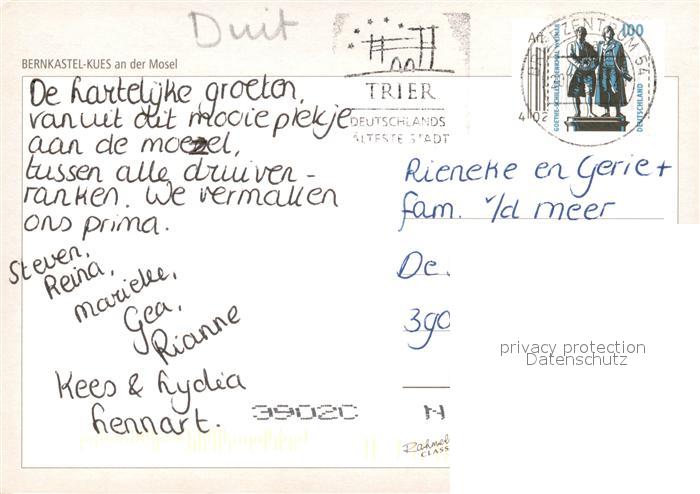 Duit
BERNKASTEL-KUES an der Mosel
De hartelijke groeten,
vanuit dit mooie plekje
aan de moezel,
tussen alle druiven-
ranken. We vermaken
ons prima.
Steven,
Reina,
Marieke,
Gea,
Rianne
Kees & Lydia
hennart.
TRIER
DEUTSCHLANDS
ÄLTESTE STADT
BRIEFZENTRUM 54
100
GOETHE-SCHILLER-DENKMAL WEIMAR
DEUTSCHLAND
Rieneke en Gerie +
fam. v/d meer
De
390
39020 N
privacy protection
Datenschutz
CLASS